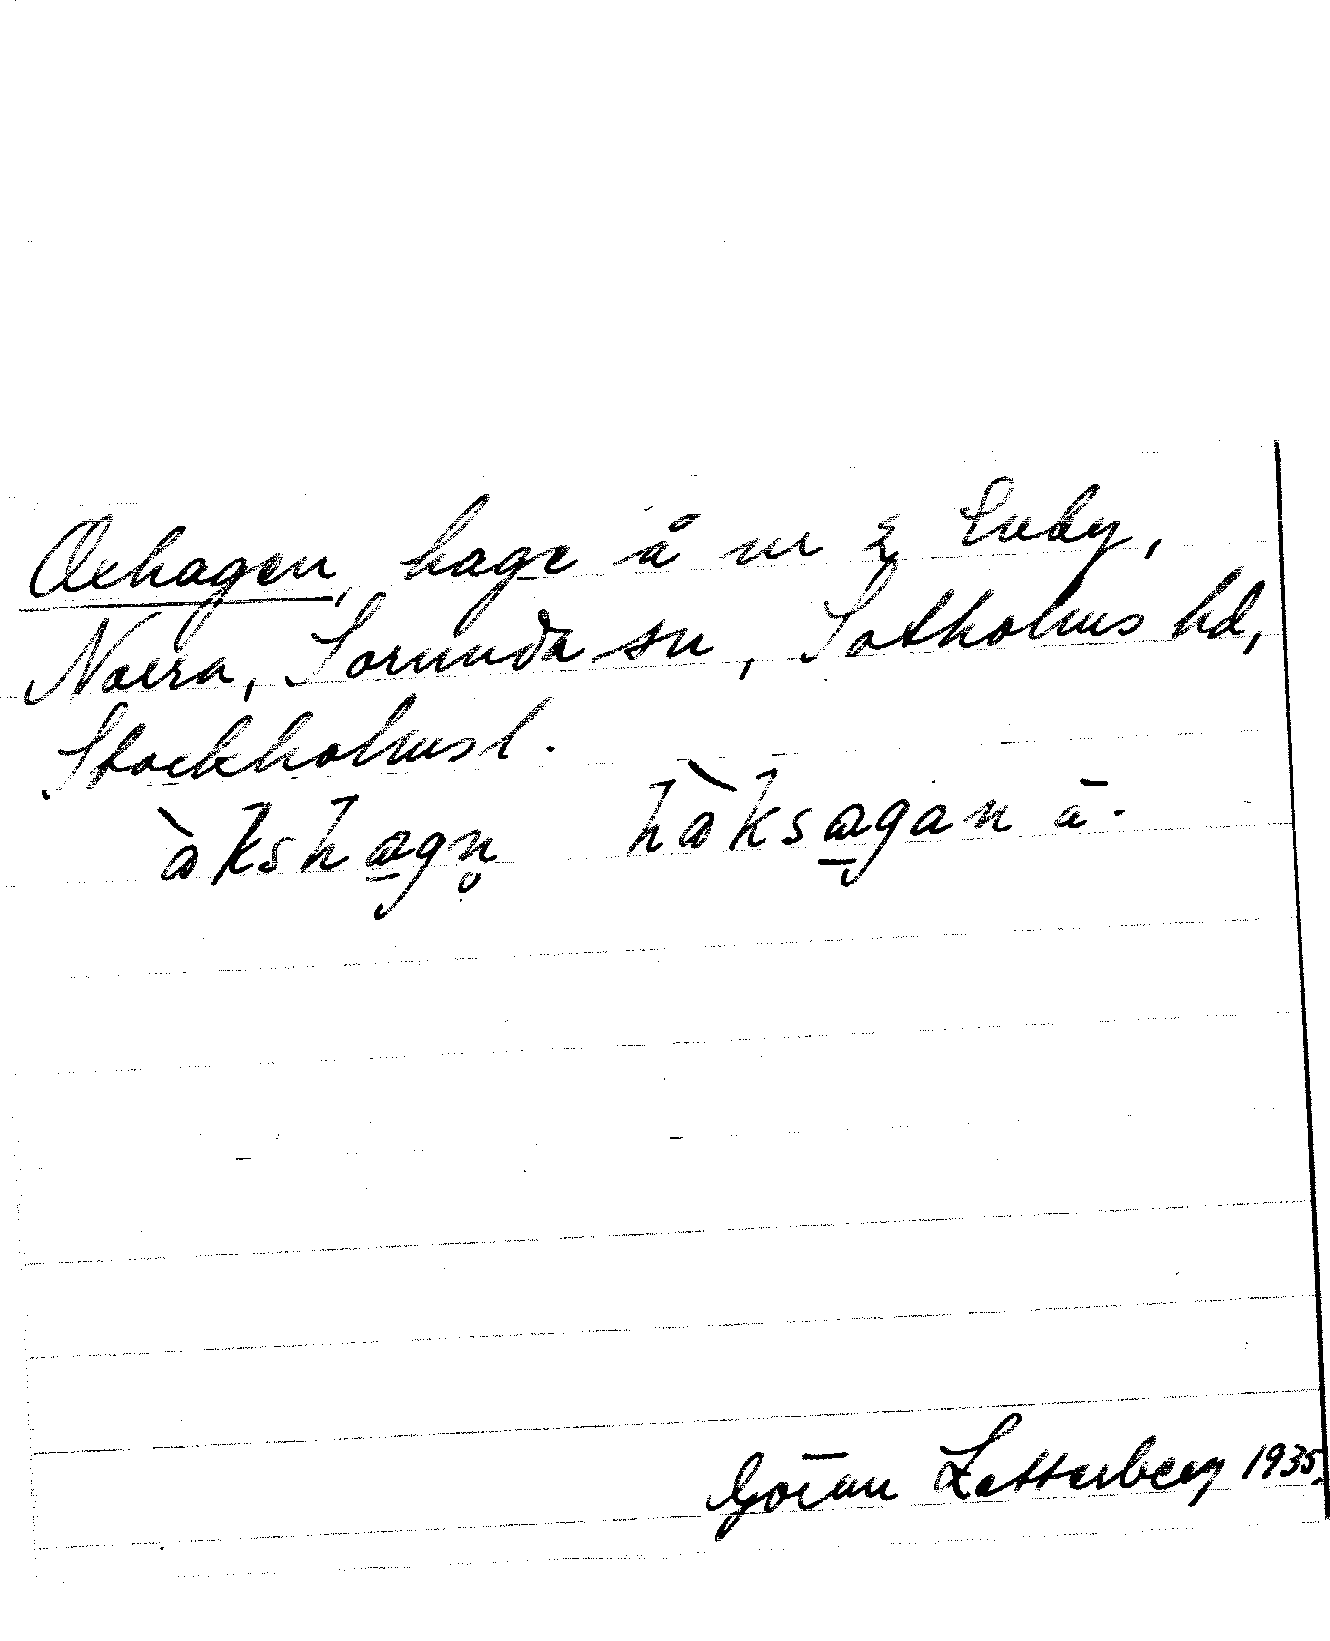 Oxhagen, hage å nr 2 Enby,
Norra, Sorunda sn, Sotholms hd,
Stockholms l.
àkshagn̥ hàksagan ā.
Göran Zetterberg 1935.